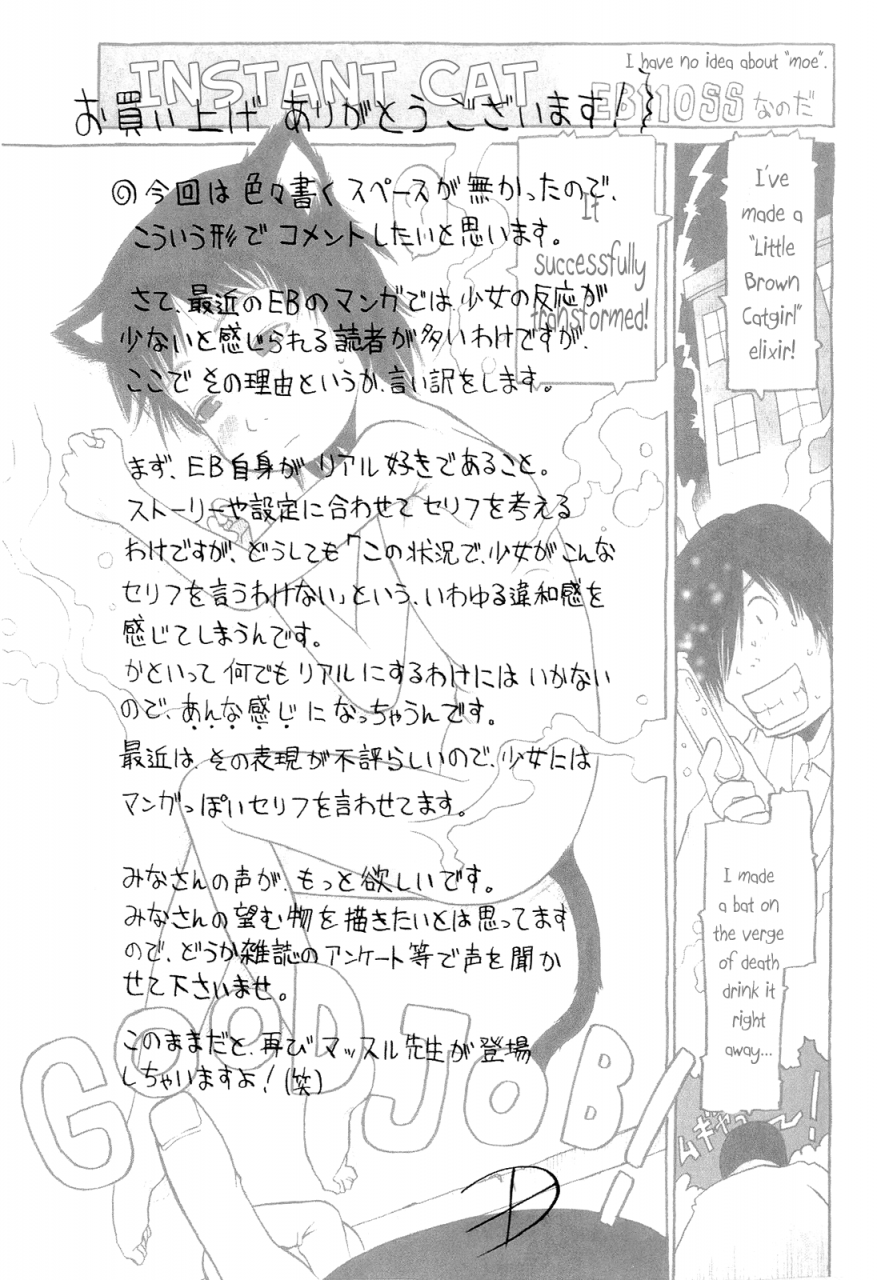 INSTANT CAT
I have no idea about "moe".
EB110SS なのだ
お買い上げ ありがとうございます!
◎今回は色々書くスペースが無かったので、
こういう形でコメントしたいと思います。
さて、最近のEBのマンガでは、少女の反応が
少ないと感じられる読者が多いわけですが、
ここでその理由というか、言い訳をします。
まず、EB自身がリアル好きであること。
ストーリーや設定に合わせてセリフを考える
わけですが、どうしても「この状況で、少女がこんな
セリフを言うわけない」という、いわゆる違和感を
感じてしまうんです。
かといって何でもリアルにするわけにはいかない
ので、あんな感じになっちゃうんです。
最近は、その表現が不評らしいので、少女には
マンガっぽいセリフを言わせてます。
みなさんの声が、もっと欲しいです。
みなさんの望む物を描きたいとは思ってます
ので、どうか雑誌のアンケート等で声を聞か
せて下さいませ。
このままだと、再びマッスル先生が登場
しちゃいますよ!(笑)
I've
made a
"Little
Brown
Catgirl"
elixir!
I made
a bat on
the verge
of death
drink it
right
away...
ムギャッ〜!
It
successfully
transformed!
GOOD JOB!!